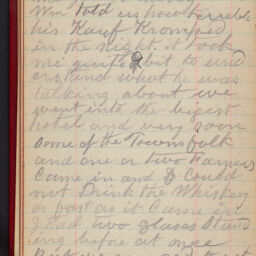 Wm Told us how
his Kauf Kromped
in the night. it took
me quite a bit to und
erstand what he was
talking about we
went into the bigest
hotel and very soon
some of the Towns folk
and one or two Farmers
Came in and I Could
not Drink the Whiskey
as fast as it Came in
I had two glasses stand
ing before at once